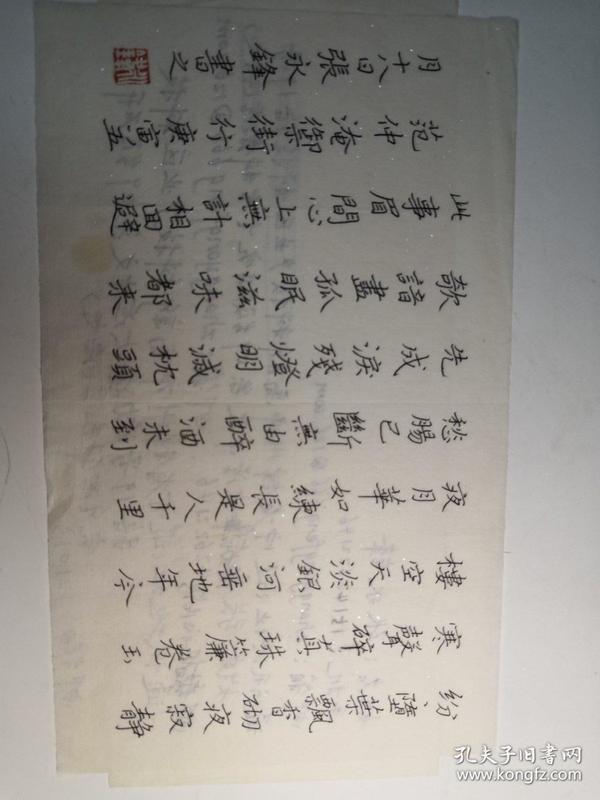 紛、墮葉飄香砌夜寂静
寒聲碎真珠簾卷玉
樓空天淡銀河垂地年、今
夜月華如練長是人千里
愁腸已斷無由醉酒未到
先成淚殘燈明滅枕頭
欹諳盡孤眠滋味都来
此事眉間心上無計相回避
范仲淹御街行庚寅五
月十八日張永鋒書之
孔夫子旧书网
www.kongfz.com